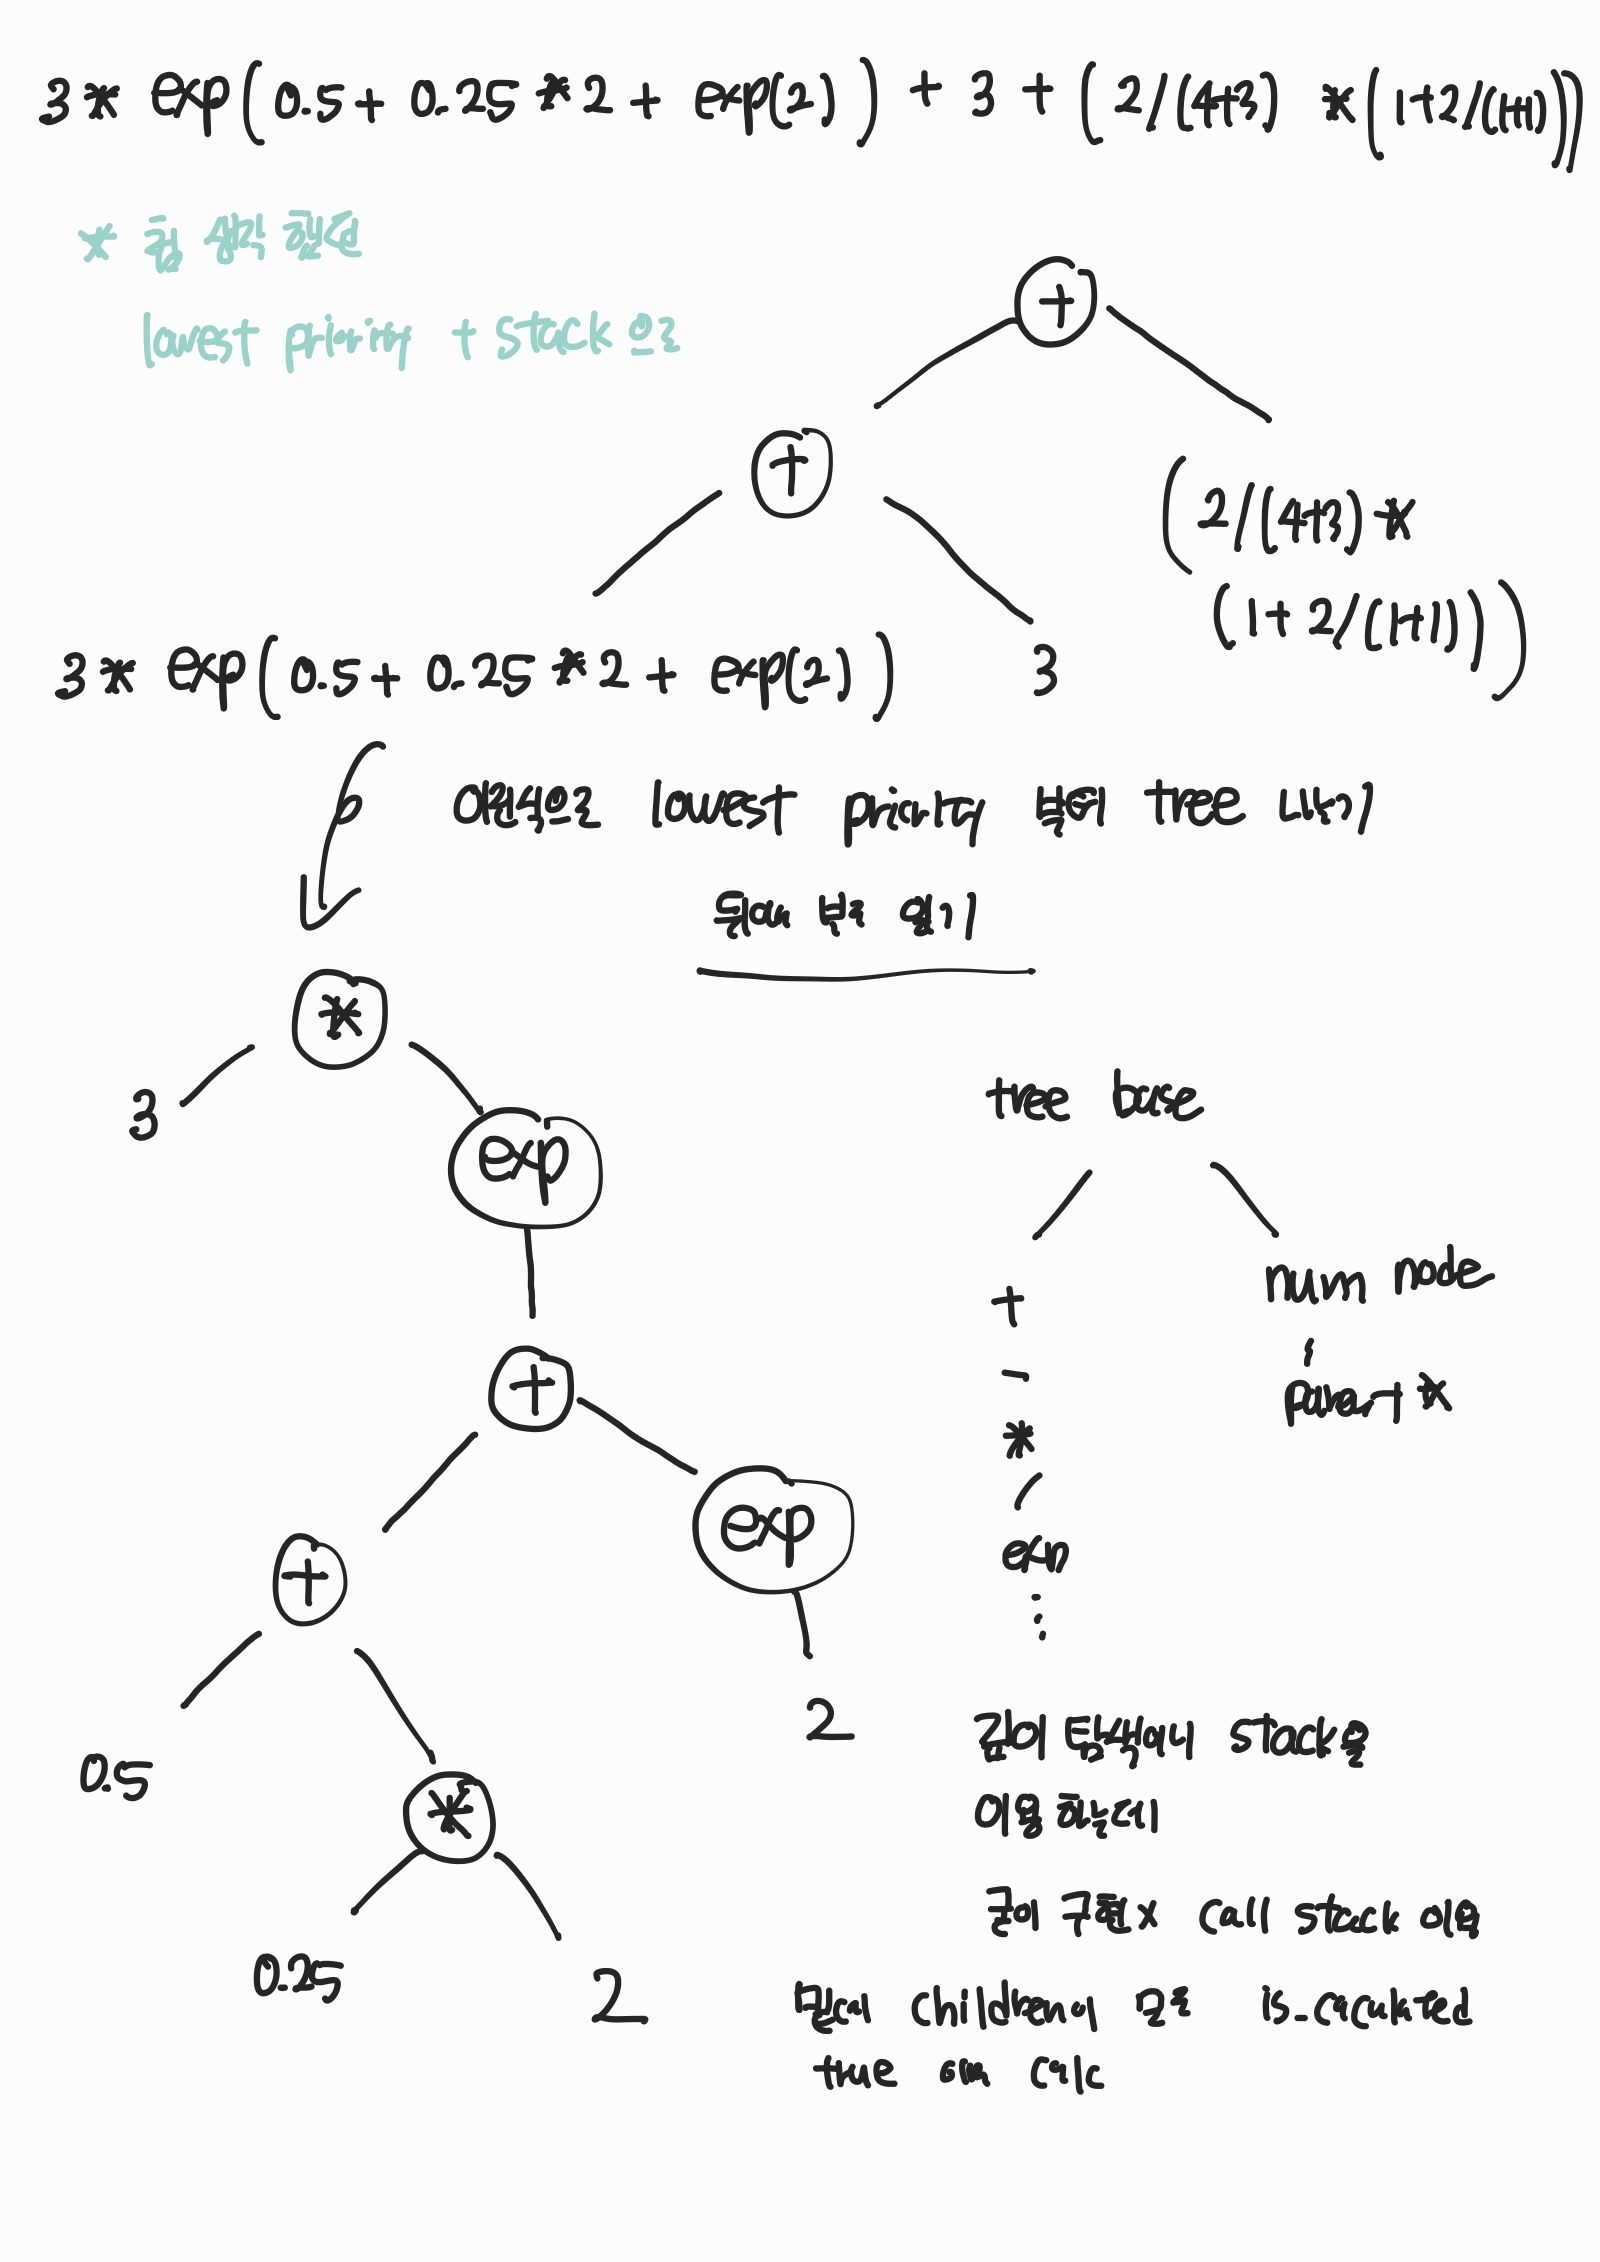 3 * exp(0.5 + 0.25 * 2 + exp(2)) + 3 + (2/(4+3) * (1+2/(1+1)))
* 힙 생략 했는데
lowest pririty + stack 으로
+
+
(2/(4+3) *
(1 + 2/(1+1)))
3 * exp(0.5 + 0.25 * 2 + exp(2))
3
이런식으로 lowest pririty 부터 tree 나누기
뒤에서 부터 읽기
*
3
exp
tree base
+
-
*
/
exp
⋮
num node
parent *
+
exp
+
2
0.5
*
0.25
2
깊이 탐색에서 stack을
이용하는데
굳이 구현 x call stack 이용
children이 모두 is_caculated
true calc